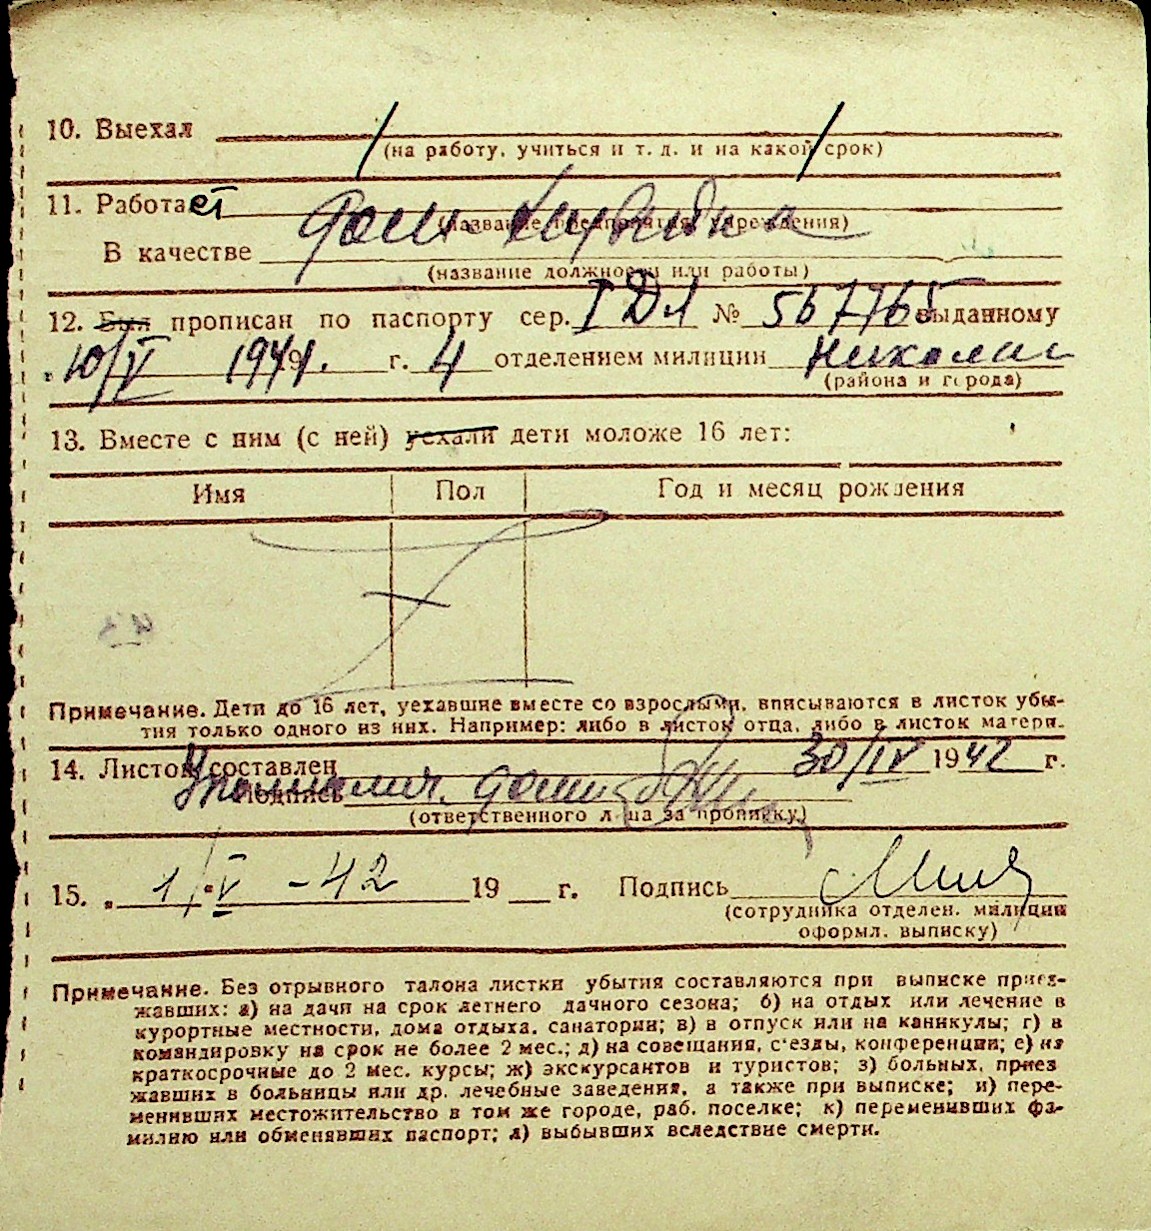 10. Выехал
(на работу, учиться и т. д. и на какой срок)
11. Работает
(название предприятия, учреждения)
В качестве
(название должности или работы)
12. Был прописан по паспорту сер. I ДЛ № 567765 выданному
10/V 1941. г. 4 отделением милиции
(района и города)
13. Вместе с ним (с ней) уехали дети моложе 16 лет:
Имя Пол Год и месяц рождения
Примечание. Дети до 16 лет, уехавшие вместе со взрослыми, вписываются в листок убы-
тия только одного из них. Например: либо в листок отца, либо в листок матери.
14. Листок составлен 30/IV 1942 г.
Подпись
(ответственного лица за прописку)
15. „ 1/V - 42 19 г. Подпись
(сотрудника отделен. милиции
оформл. выписку)
Примечание. Без отрывного талона листки убытия составляются при выписке приез-
жавших: а) на дачи на срок летнего дачного сезона; б) на отдых или лечение в
курортные местности, дома отдыха, санатории; в) в отпуск или на каникулы; г) в
командировку на срок не более 2 мес.; д) на совещания, с'езды, конференции; е) на
краткосрочные до 2 мес. курсы; ж) экскурсантов и туристов; з) больных, приез
жавших в больницы или др. лечебные заведения, а также при выписке; и) пере-
менивших местожительство в том же городе, раб. поселке; к) переменивших фа-
милию или обменявших паспорт; л) выбывших вследствие смерти.